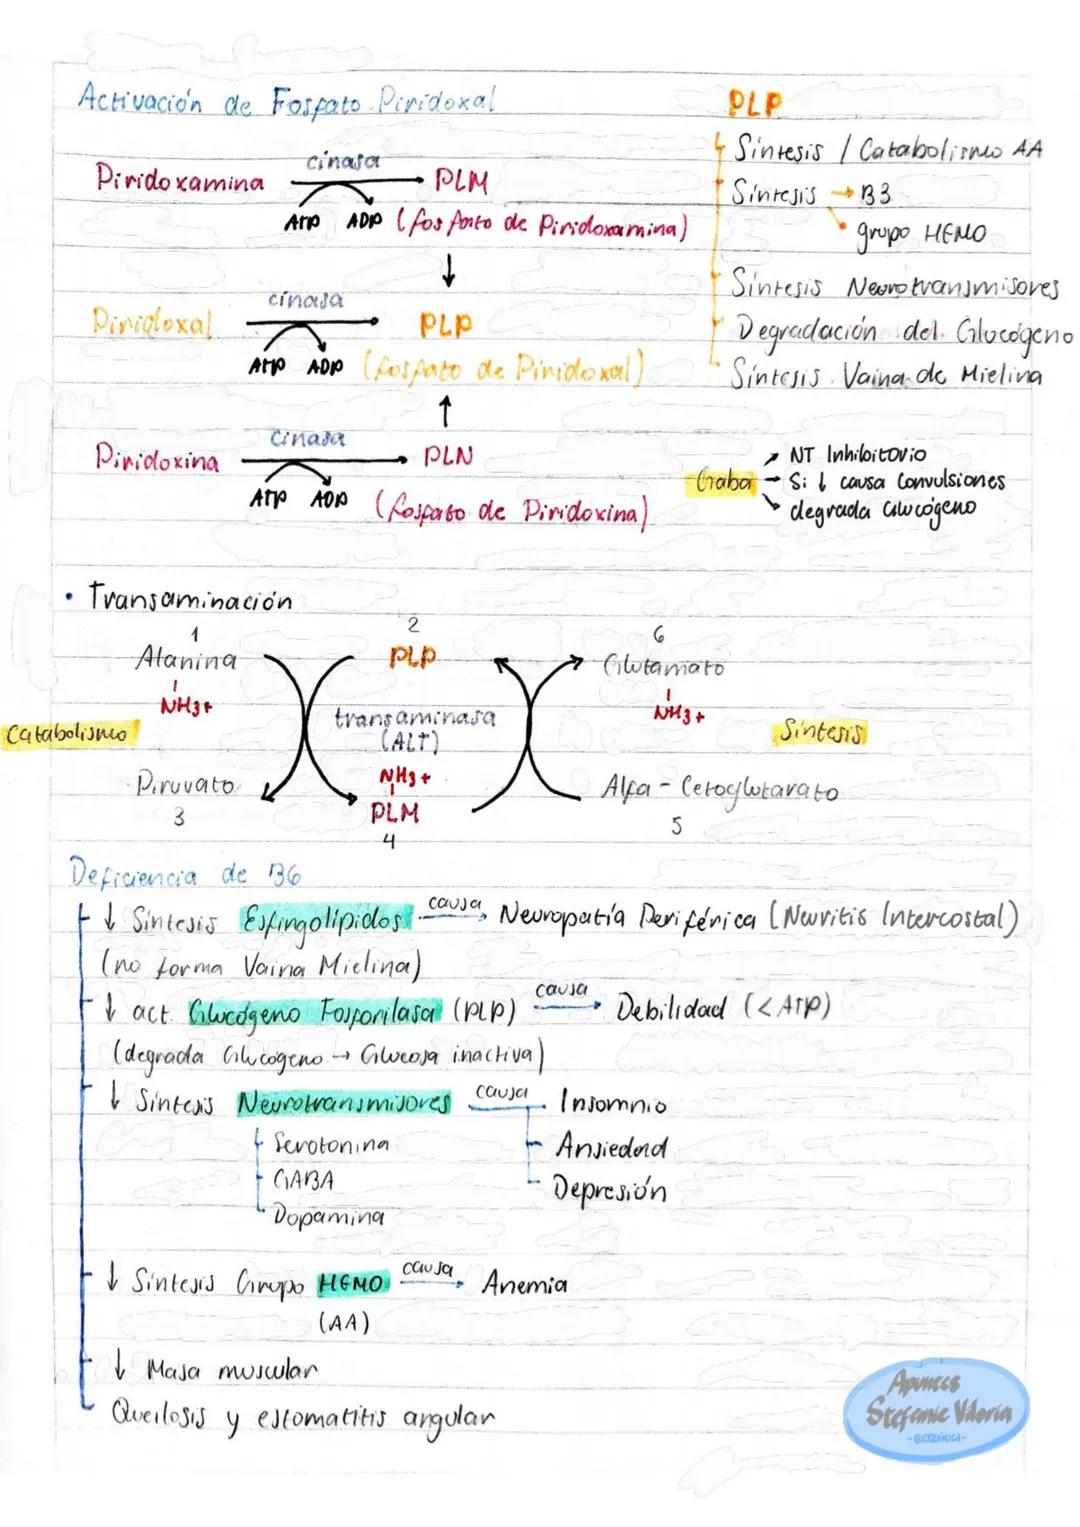 Activación de Fosfato Piridoxal
Piridoxamina cinasa PLM
ATP ADP (fosfato de Piridoxamina)
Piridoxal cinasa PLP
ATP ADP (fosfato de Piridoxal)
Piridoxina cinasa PLN
ATP ADP (fosfato de Piridoxina)
PLP
Síntesis / Catabolismo AA
Síntesis → B3
grupo HEMO
Síntesis Neurotransmisores
Degradación del Glucógeno
Síntesis Vaina de Mielina
Gaba → NT Inhibitorio
→ Si ↓ causa Convulsiones
degrada Glucógeno
• Transaminación
1 2 6
Alanina PLP Glutamato
NH3+ NH3+
Catabolismo transaminasa Síntesis
(ALT)
NH3+
Piruvato PLM Alfa - Cetoglutarato
3 4 5
Deficiencia de B6
↓ Síntesis Esfingolípidos causa → Neuropatía Periférica (Neuritis Intercostal)
(no forma Vaina Mielina)
↓ act. Glucógeno Fosforilasa (PLP) causa → Debilidad (< ATP)
(degrada Glucógeno → Glucosa inactiva)
↓ Síntesis Neurotransmisores causa Insomnio
Serotonina Ansiedad
GABA Depresión
Dopamina
↓ Síntesis Grupo HEMO causa → Anemia
(AA)
↓ Masa muscular
Queilosis y estomatitis angular
Apuntes
Stefanie Viloria
- BIOQUÍMICA -